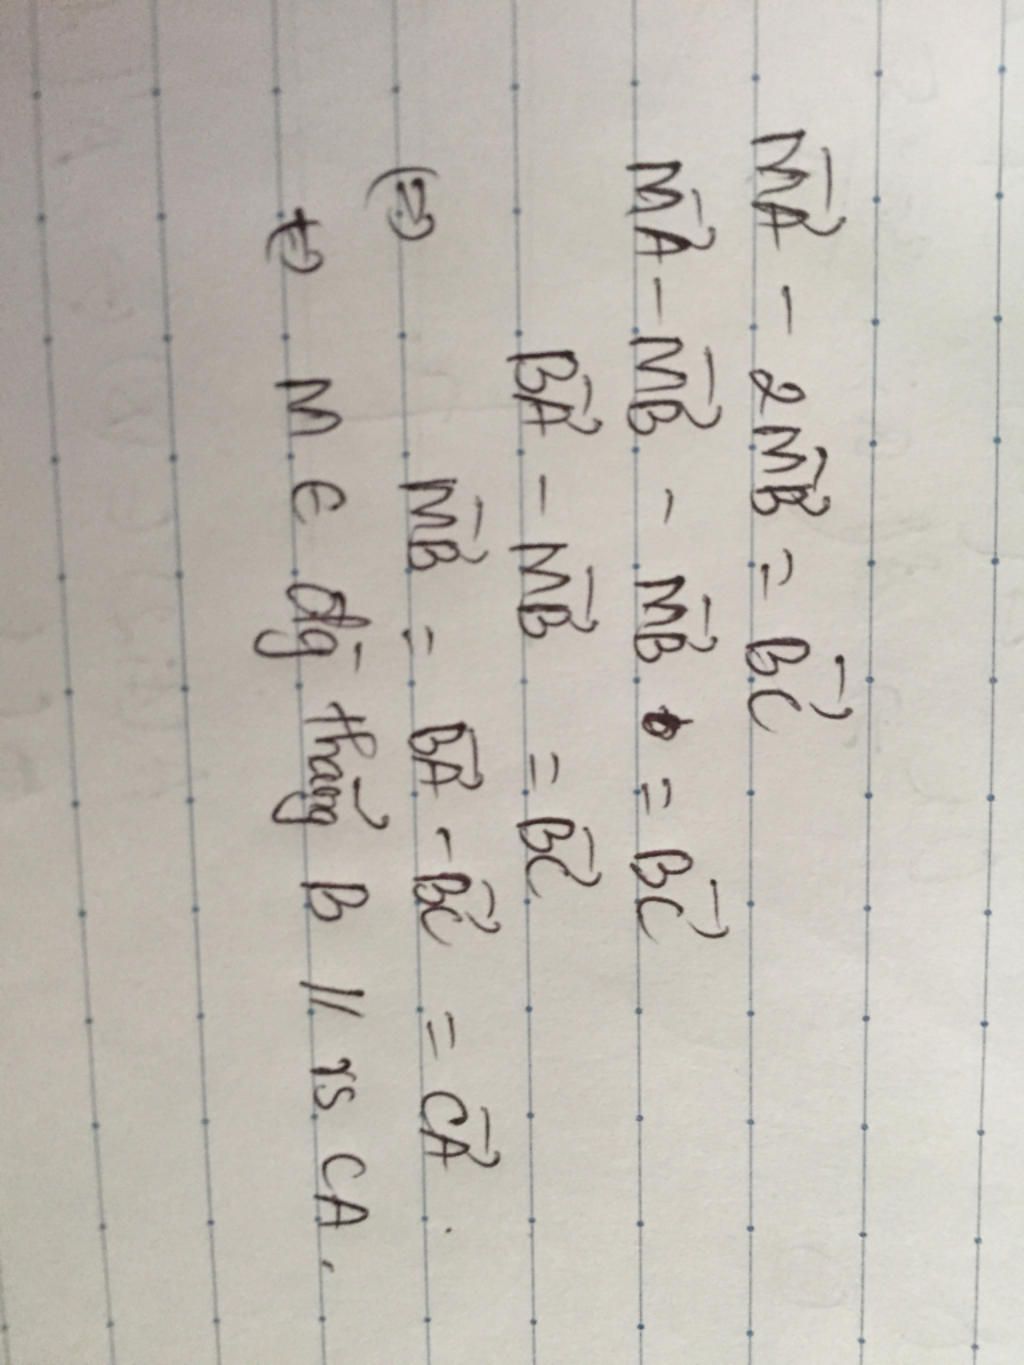 MA⃗ - 2MB⃗ = BC⃗
MA⃗ - MB⃗ - MB⃗ = BC⃗
BA⃗ - MB⃗ = BC⃗
(=) MB⃗ = BA⃗ - BC⃗ = CA⃗.
M ∈ đg thẳng B // vs CA.